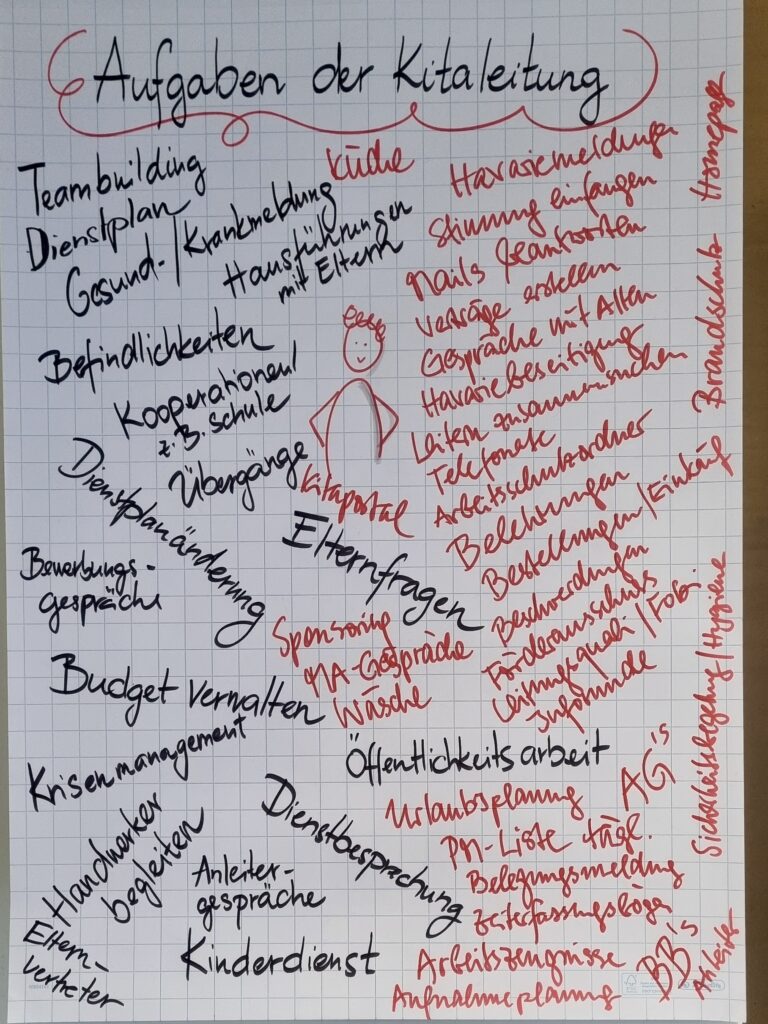 Aufgaben der Kitaleitung
Teambuilding
Dienstplan
Gesund-/Krankmeldung
Hausführungen
mit Eltern
Befindlichkeiten
Kooperationen/
z.B. Schule
Übergänge
Dienstplanänderung
Bewerbungs-
gespräche
Budget verwalten
Krisenmanagement
Handwerker
begleiten
Eltern-
vertreter
Anleiter-
gespräche
Kinderdienst
Küche
Kitaportal
Elternfragen
Sponsoring
MA-Gespräche
Wäsche
Öffentlichkeitsarbeit
Dienstbesprechung
Havariemeldungen
Stimmung einfangen
Mails beantworten
Verträge erstellen
Gespräche mit Allen
Havariebeseitigung
Leitern zusammensuchen
Telefonate
Arbeitsschutzordner
Belehrungen
Bestellungen/Einkauf
Beschwerdungen
Förderausschuss
Leitungsquali/Fobi
Inforunde
Urlaubsplanung
AG's
PM-Liste tägl.
Belegungsmeldung
Zeiterfassungsbögen
Arbeitszeugnisse
BB's
Aufnahmeplanung
Homepage
Brandschutz
Sicherheitsbegehung/Hygiene